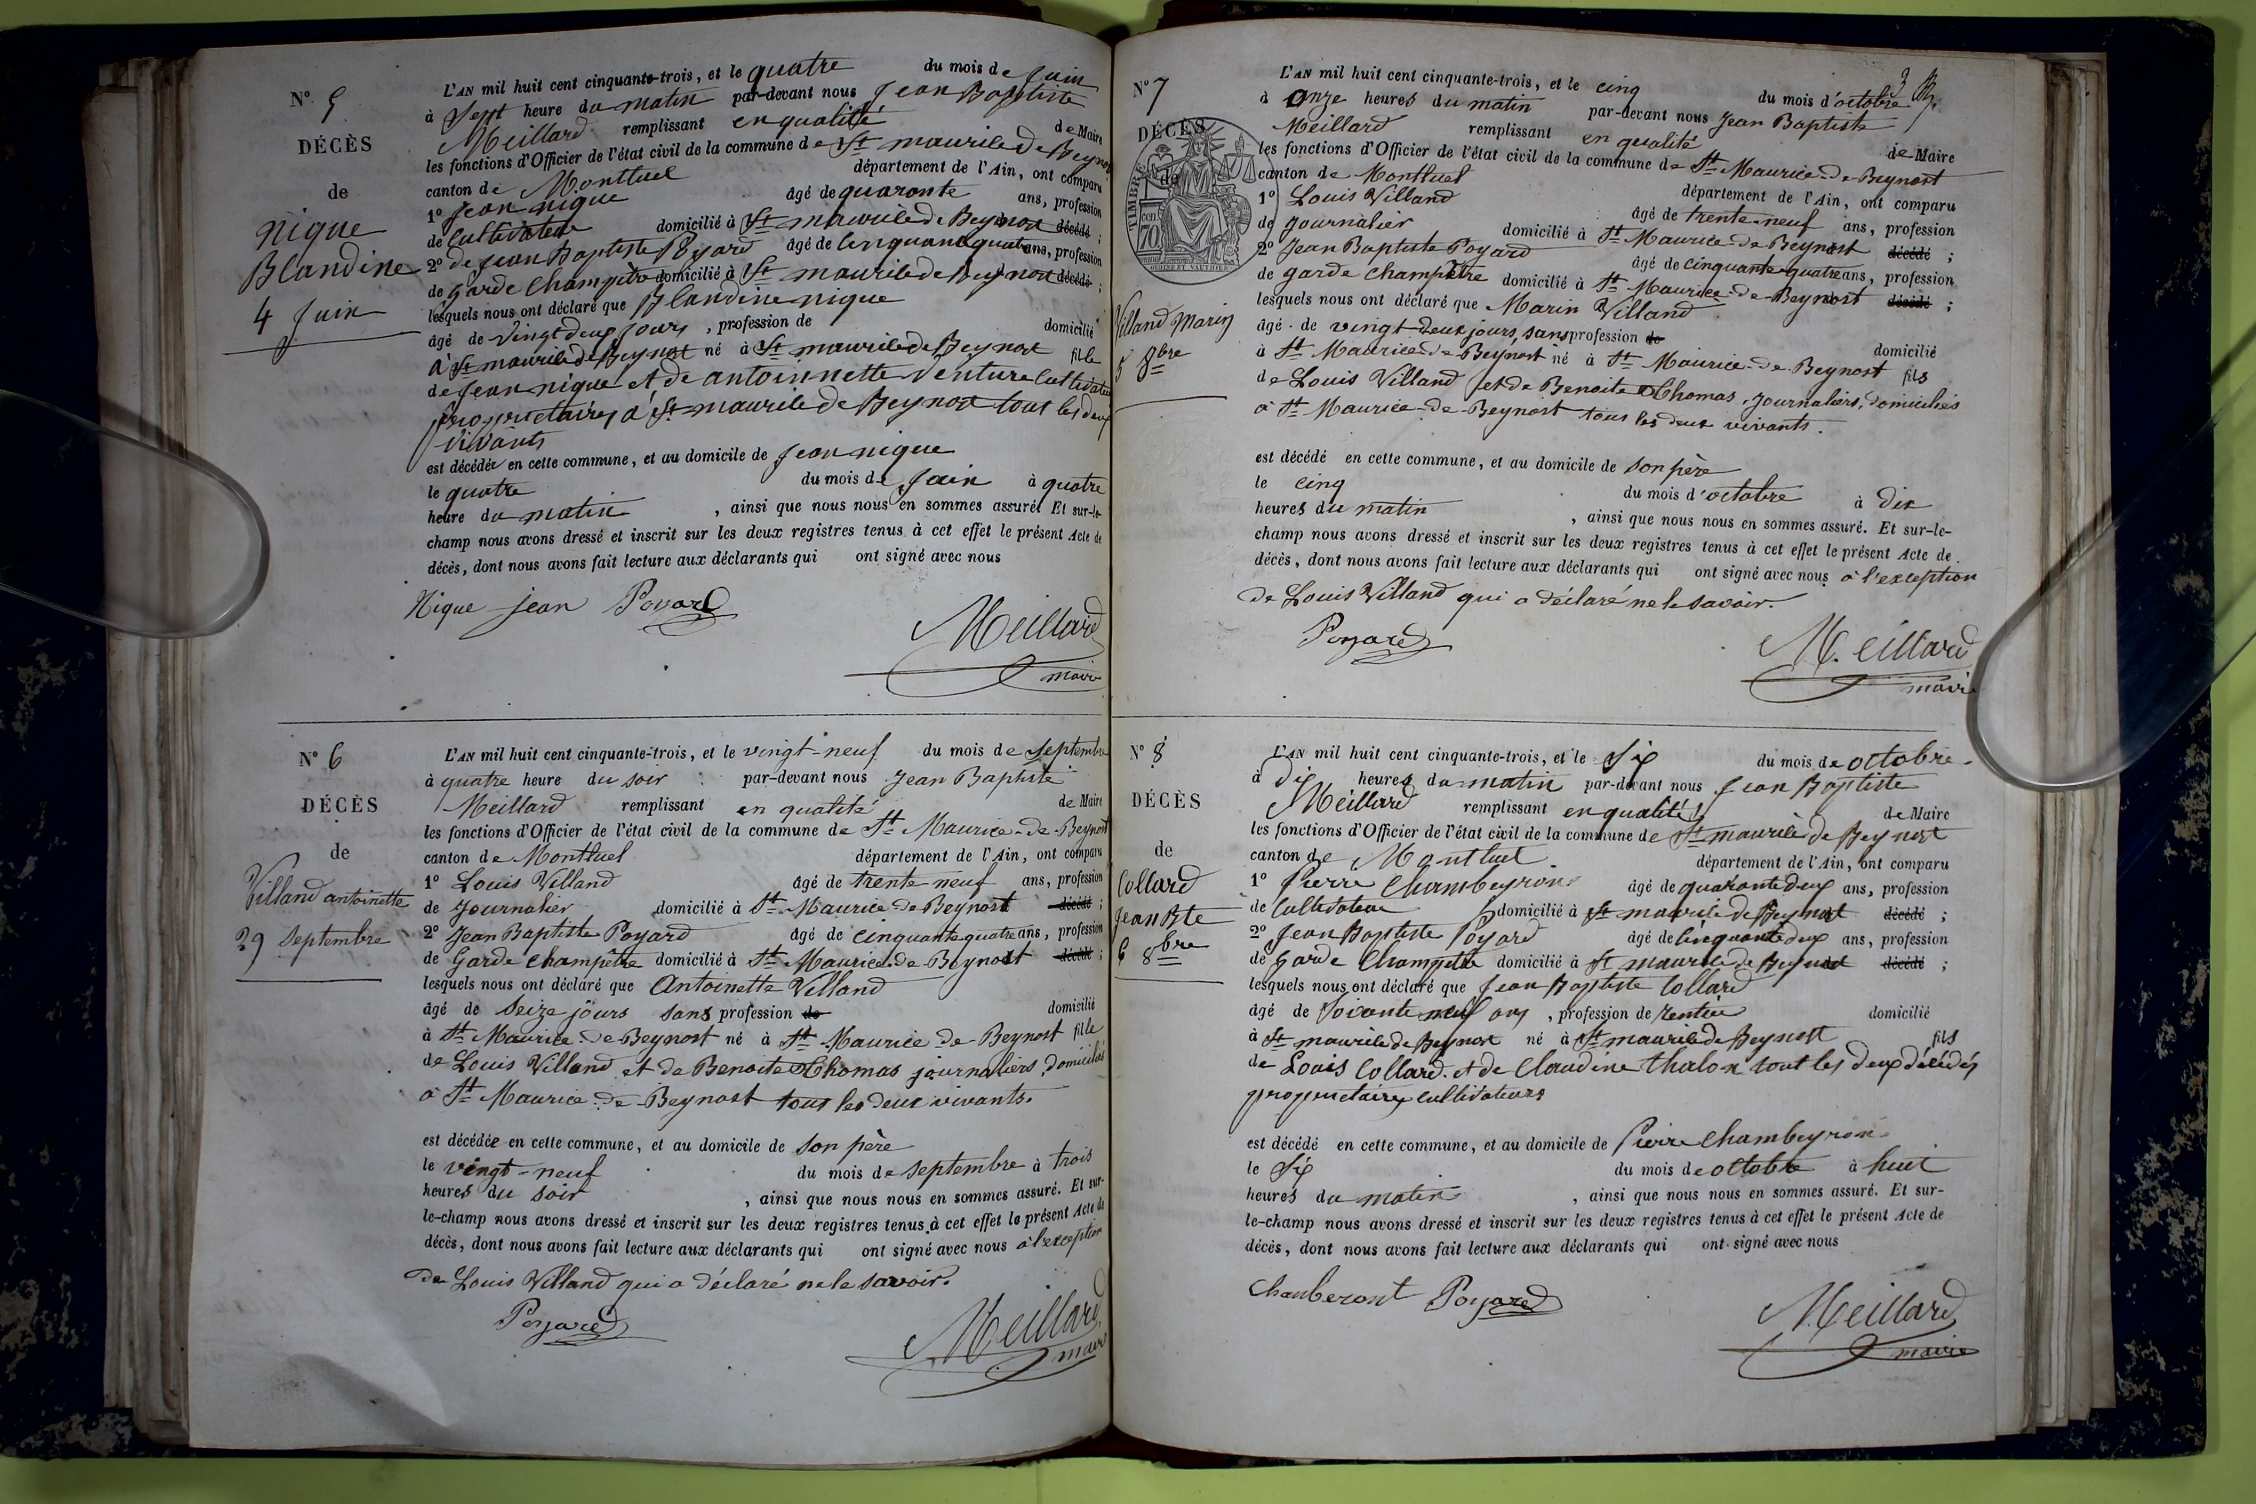 N° 5
DÉCÈS
de
Nique
Blandine
4 Juin
L'AN mil huit cent cinquante-trois, et le quatre du mois de Juin
à Sept heure du matin par-devant nous Jean Baptiste
Meillard remplissant en qualité de Maire
les fonctions d'Officier de l'état civil de la commune de St maurice de Beynost
canton de Montluel département de l'Ain, ont comparu
1° Jean nique âgé de quarante ans, profession
de Cultivateur domicilié à St maurice de Beynost décédé ;
2° de Jean Baptiste Poyard âgé de Cinquante quatre ans, profession
de Garde Champêtre domicilié à St maurice de Beynost décédé ;
lesquels nous ont déclaré que Blandine nique
âgé de vingt deux jours, profession de domicilié
à St maurice de Beynost né à St maurice de Beynost fille
de Jean nique et de antoinnette Venture Cultivateurs
proprietaires à St maurice de Beynost tous les deux
vivants
est décédée en cette commune, et au domicile de Jean nique
le quatre du mois de Juin à quatre
heure du matin, ainsi que nous nous en sommes assuré. Et sur-le-
champ nous avons dressé et inscrit sur les deux registres tenus à cet effet le présent Acte de
décès, dont nous avons fait lecture aux déclarants qui ont signé avec nous
Nique jean Poyard
Meillard
maire
N° 6
DÉCÈS
de
Villand antoinette
29 Septembre
L'AN mil huit cent cinquante-trois, et le vingt-neuf du mois de Septembre
à quatre heure du soir par-devant nous Jean Baptiste
Meillard remplissant en qualité de Maire
les fonctions d'Officier de l'état civil de la commune de St Maurice-de-Beynost
canton de Montluel département de l'Ain, ont comparu
1° Louis Villand âgé de trente-neuf ans, profession
de Journalier domicilié à St Maurice-de-Beynost décédé ;
2° Jean Baptiste Poyard âgé de cinquante quatre ans, profession
de Garde champêtre domicilié à St Maurice-de-Beynost décédé ;
lesquels nous ont déclaré que Antoinette Villand
âgé de seize jours sans profession de domicilié
à St Maurice-de-Beynost né à St Maurice-de-Beynost fille
de Louis Villand et de Benoite Thomas journaliers, domiciliés
à St Maurice-de-Beynost tous les deux vivants.
est décédée en cette commune, et au domicile de son père
le vingt-neuf du mois de septembre à trois
heures du soir, ainsi que nous nous en sommes assuré. Et sur-
le-champ nous avons dressé et inscrit sur les deux registres tenus à cet effet le présent Acte de
décès, dont nous avons fait lecture aux déclarants qui ont signé avec nous à l'exception
de Louis Villand qui a déclaré ne le savoir.
Poyard
Meillard
maire
3
N° 7
DÉCÈS
de
TIMBRE
70 cen.
Villand Marin
5 8bre
L'AN mil huit cent cinquante-trois, et le cinq du mois d'octobre
à onze heures du matin par-devant nous Jean Baptiste
Meillard remplissant en qualité de Maire
les fonctions d'Officier de l'état civil de la commune de St Maurice-de-Beynost
canton de Montluel département de l'Ain, ont comparu
1° Louis Villand âgé de trente-neuf ans, profession
de journalier domicilié à St Maurice-de-Beynost décédé ;
2° Jean Baptiste Poyard âgé de cinquante-quatre ans, profession
de garde champêtre domicilié à St Maurice-de-Beynost décédé ;
lesquels nous ont déclaré que Marin Villand
âgé de vingt-deux jours, sans profession de domicilié
à St Maurice-de-Beynost né à St Maurice-de-Beynost fils
de Louis Villand et de Benoite Thomas, journaliers, domiciliés
à St Maurice-de-Beynost tous les deux vivants.
est décédé en cette commune, et au domicile de son père
le cinq du mois d'octobre à dix
heures du matin, ainsi que nous nous en sommes assuré. Et sur-le-
champ nous avons dressé et inscrit sur les deux registres tenus à cet effet le présent Acte de
décès, dont nous avons fait lecture aux déclarants qui ont signé avec nous à l'exception
de Louis Villand qui a déclaré ne le savoir.
Poyard
Meillard
maire
N° 8
DÉCÈS
de
Collard
Jean Bte
6 8bre
L'AN mil huit cent cinquante-trois, et le Six du mois de octobre
à dix heures du matin par-devant nous Jean Baptiste
Meillard remplissant en qualité de Maire
les fonctions d'Officier de l'état civil de la commune de St maurice de Beynost
canton de Montluel département de l'Ain, ont comparu
1° Pierre Chambeyron âgé de quarante deux ans, profession
de Cultivateur domicilié à St maurice de Beynost décédé ;
2° Jean Baptiste Poyard âgé de Cinquante deux ans, profession
de Garde Champetre domicilié à St maurice de Beynost décédé ;
lesquels nous ont déclaré que Jean Baptiste Collard
âgé de Soixante neuf ans, profession de rentier domicilié
à St maurice de Beynost né à St maurice de Beynost fils
de Louis Collard et de Claudine thalon tout les deux décédés
proprietaires cultivateurs
est décédé en cette commune, et au domicile de Pierre Chambeyron
le Six du mois de octobre à huit
heures du matin, ainsi que nous nous en sommes assuré. Et sur-
le-champ nous avons dressé et inscrit sur les deux registres tenus à cet effet le présent Acte de
décès, dont nous avons fait lecture aux déclarants qui ont signé avec nous
Chamberont Poyard
Meillard
maire